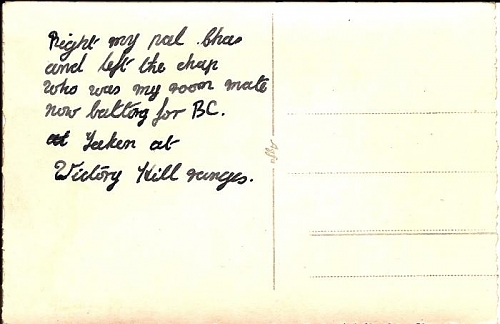 Right my pal Chas
and left the chap
who was my room mate
now batting for BC.
Taken at
Victory Hill ranges.